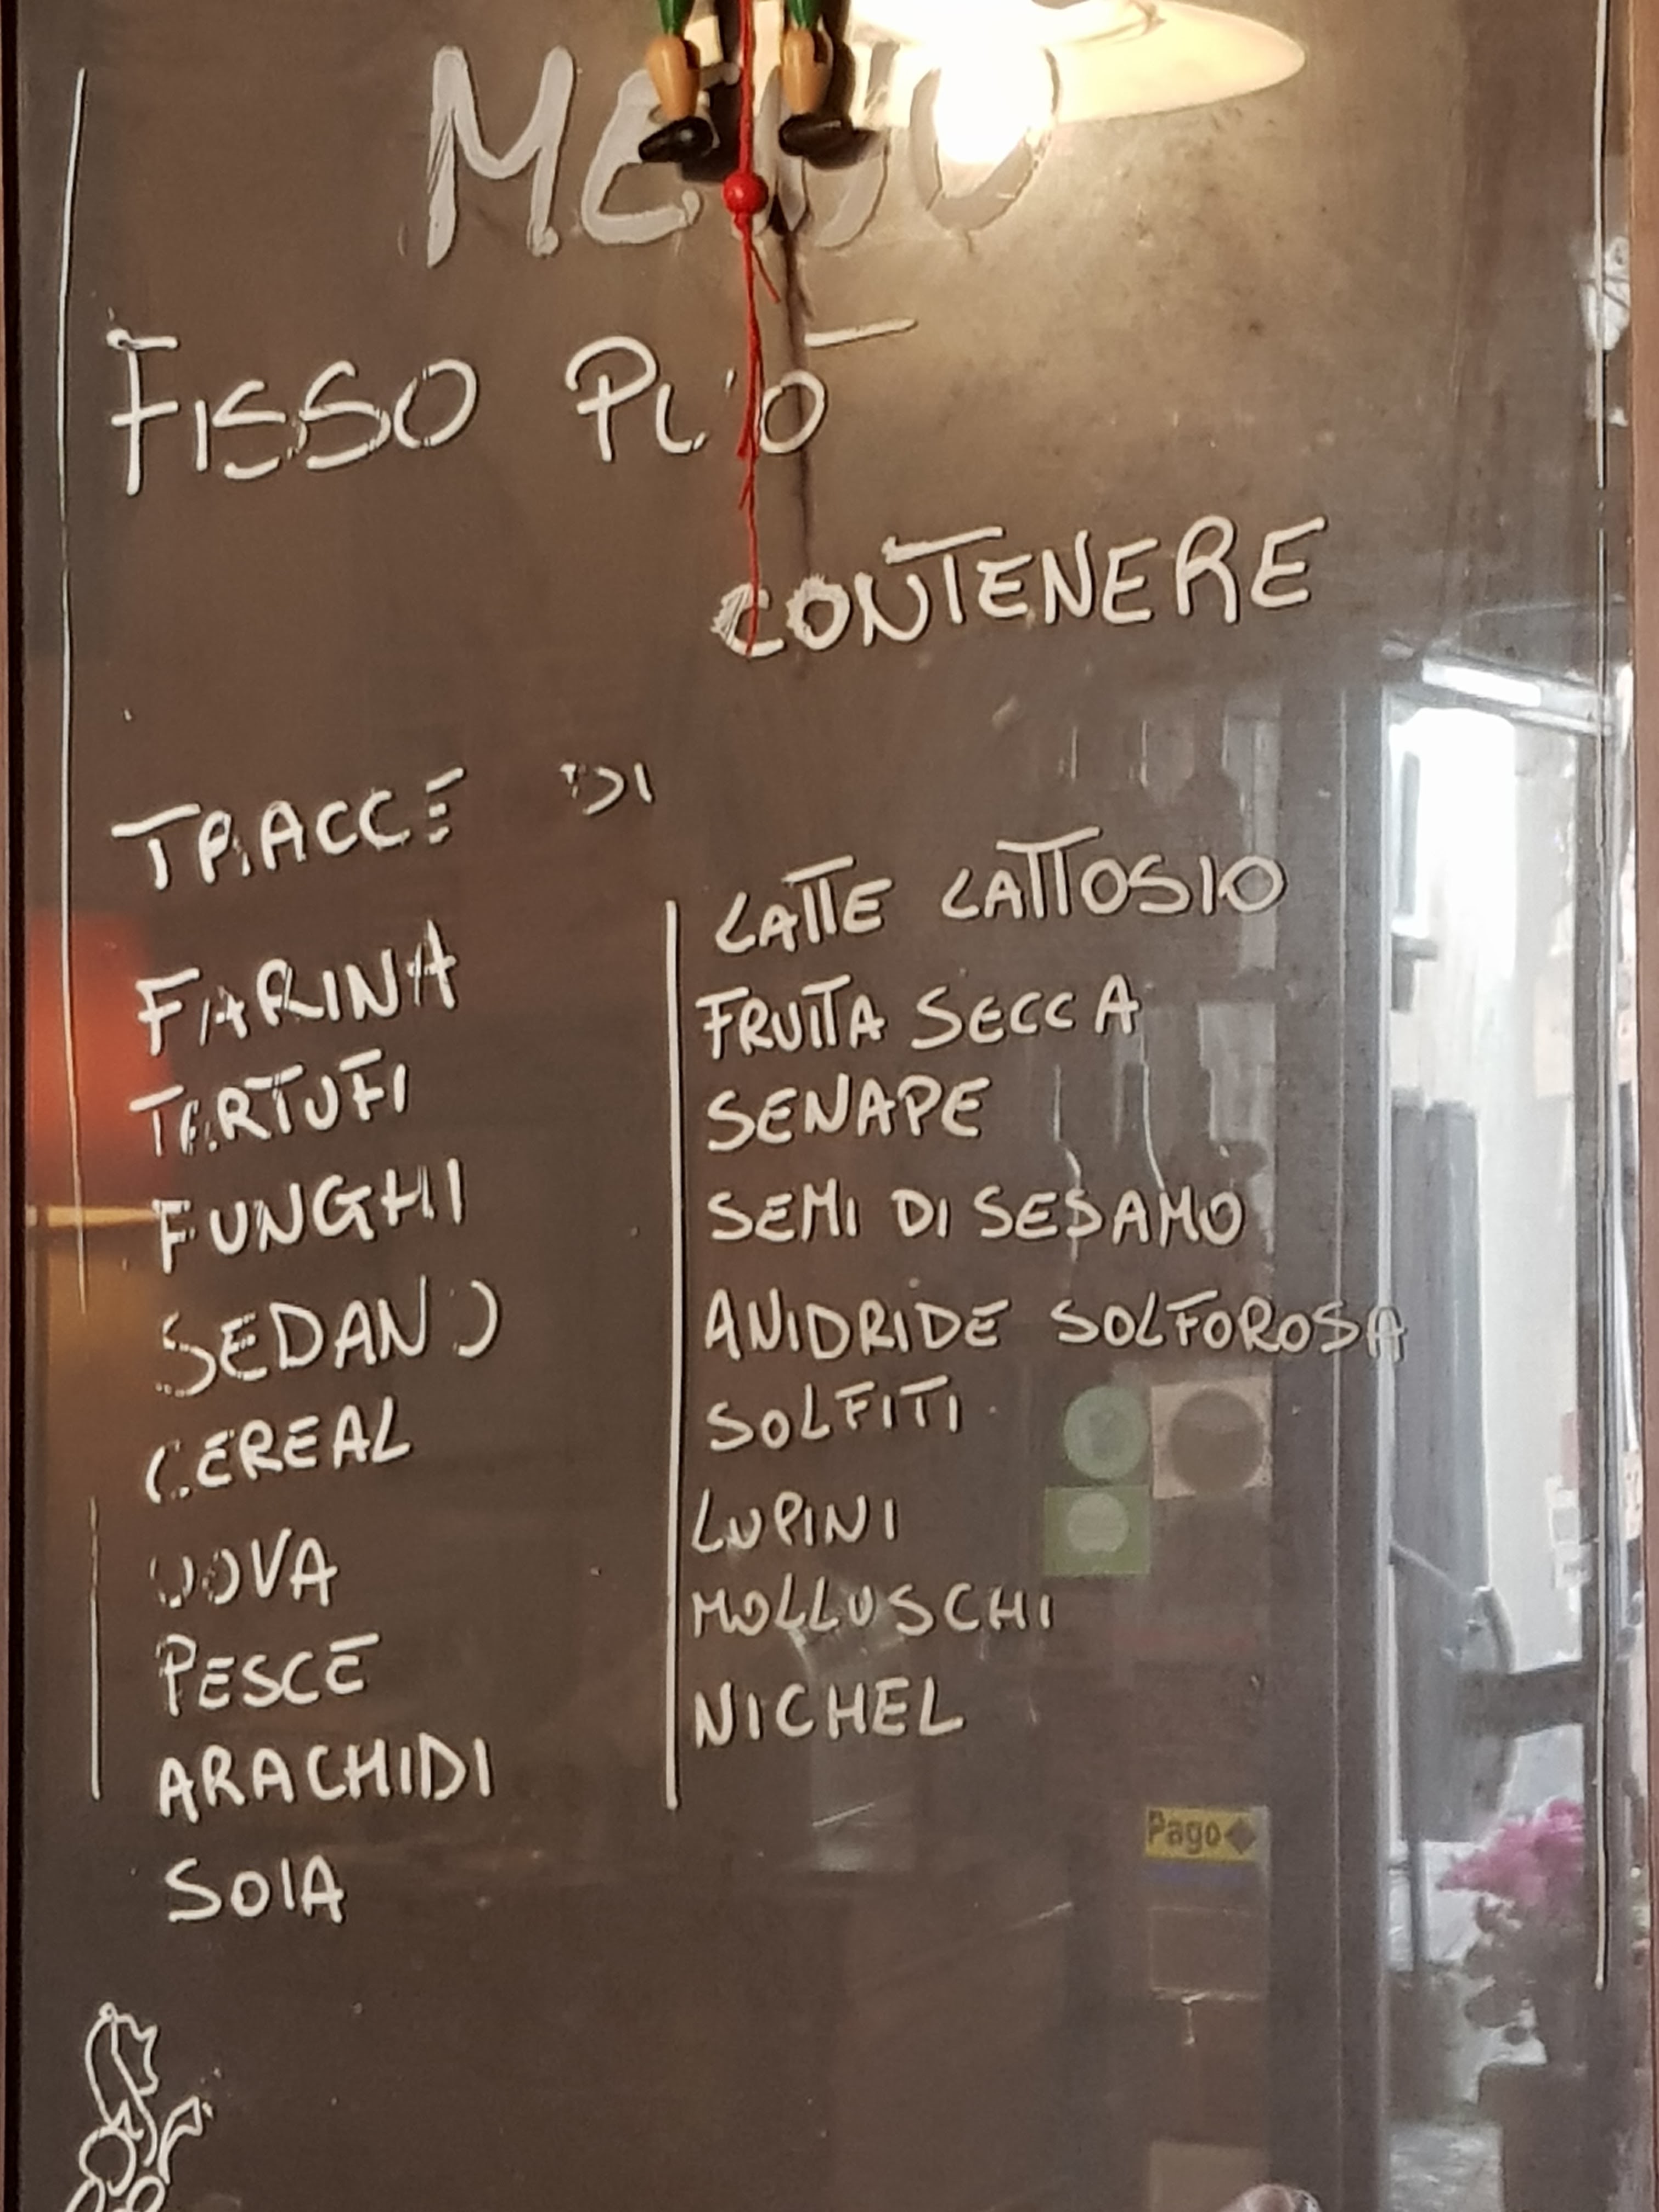 MENU
FISSO PUÒ
CONTENERE
TRACCE DI
FARINA
TARTUFI
FUNGHI
SEDANO
CEREAL
UOVA
PESCE
ARACHIDI
SOIA
LATTE LATTOSIO
FRUTTA SECCA
SENAPE
SEMI DI SESAMO
ANIDRIDE SOLFOROSA
SOLFITI
LUPINI
MOLLUSCHI
NICHEL
Pago